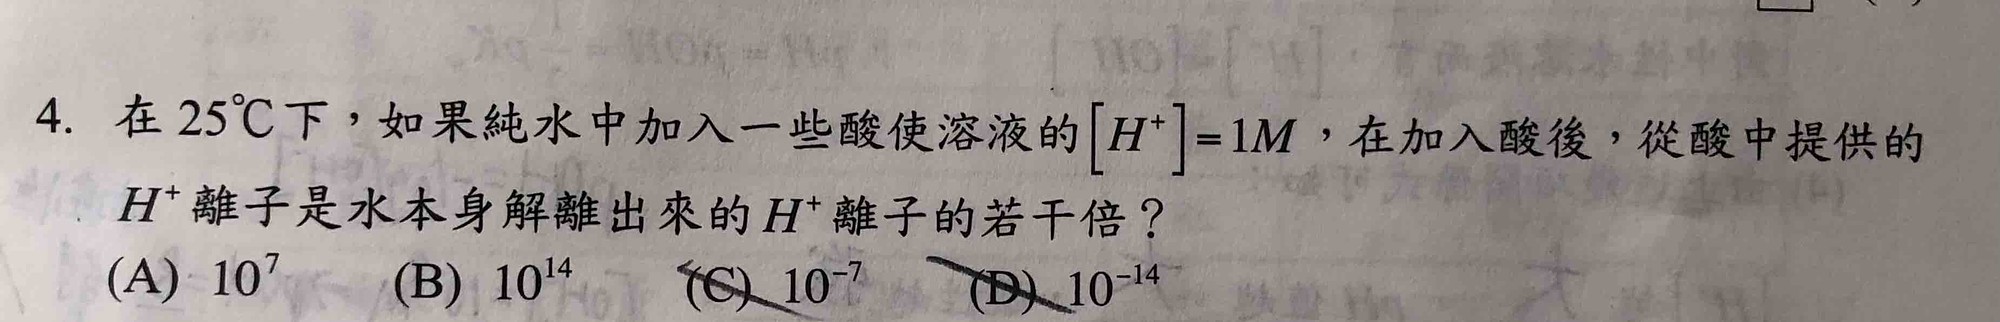 4. 在 25℃下，如果純水中加入一些酸使溶液的[H⁺]=1M，在加入酸後，從酸中提供的
H⁺離子是水本身解離出來的H⁺離子的若干倍？
(A) 10⁷ (B) 10¹⁴ (C) 10⁻⁷ (D) 10⁻¹⁴